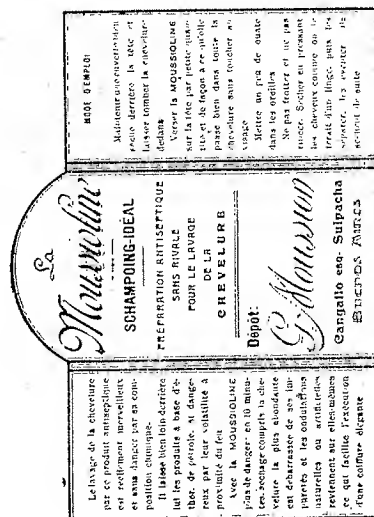 Le lavage de la chevelure
par ce produit antiseptique
est reellement merveilleux
et sans danger par sa com-
position chimique.
Il laisse bien loin derrière
lui les produits à base d'é-
ther, de pétrole, si dange-
reux par leur volatilité à
proximité du feu
Avec la MOUSSIOLINE
plus de danger: en 10 minu-
tes, sechage compris la che-
velure la plus abondante
est debarrassée de ses im-
puretés et les ondulations
naturelles ou artificielles
reviennent sur elles-mêmes
ce qui facilite l'exécution
d'une coiffure élégante
La
Moussioline
SCHAMPOING-IDÉAL
PRÉPARATION ANTISEPTIQUE
SANS RIVALE
POUR LE LAVAGE
DE LA
CHEVELURE
Dépôt:
G. Moussion
Cangallo esq. Suipacha
BUENOS AIRES
MODE D'EMPLOI
Maintenir une cuvette bien
derrière la tête et
laisser tomber la chevelure
dedans
Verser la MOUSSIOLINE
sur la tête par petite quan-
tité et de façon a ce qu'elle
passe bien dans toute la
chevelure sans toucher au
visage
Mettre un peu de ouate
dans les oreilles
Ne pas frotter et ne pas
rincer. Secher en pressant
les cheveux comme on le
ferait d'un linge, puis les
séparer, les
de suite